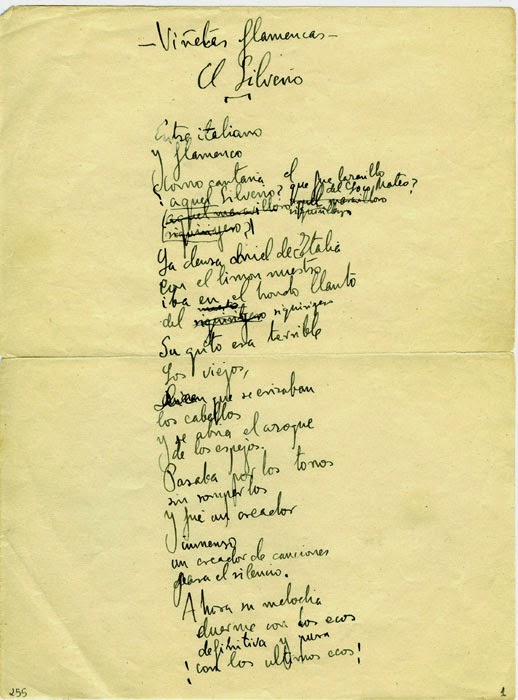 —Viñetas flamencas—
El Silverio
Entre italiano
y flamenco
¿Como cantaria el que fue lazarillo
aquel Silverio? del Loco Mateo?
(aquel maravilloso aquel maravilloso
siguiriyero?) siguiriyero
La densa miel de Italia
con el limon nuestro
iba en el hondo llanto
del siguiriyero siguiriyero
Su grito era terrible
Los viejos,
dicen que se erizaban
los cabellos
y se abria el azogue
de los espejos.
Pasaba por los tonos
sin romperlos
y fué un creador
inmenso
un creador de canciones
para el silencio.
Ahora su melodia
duerme con los ecos
definitiva y pura
¡con los ultimos ecos!
255 1